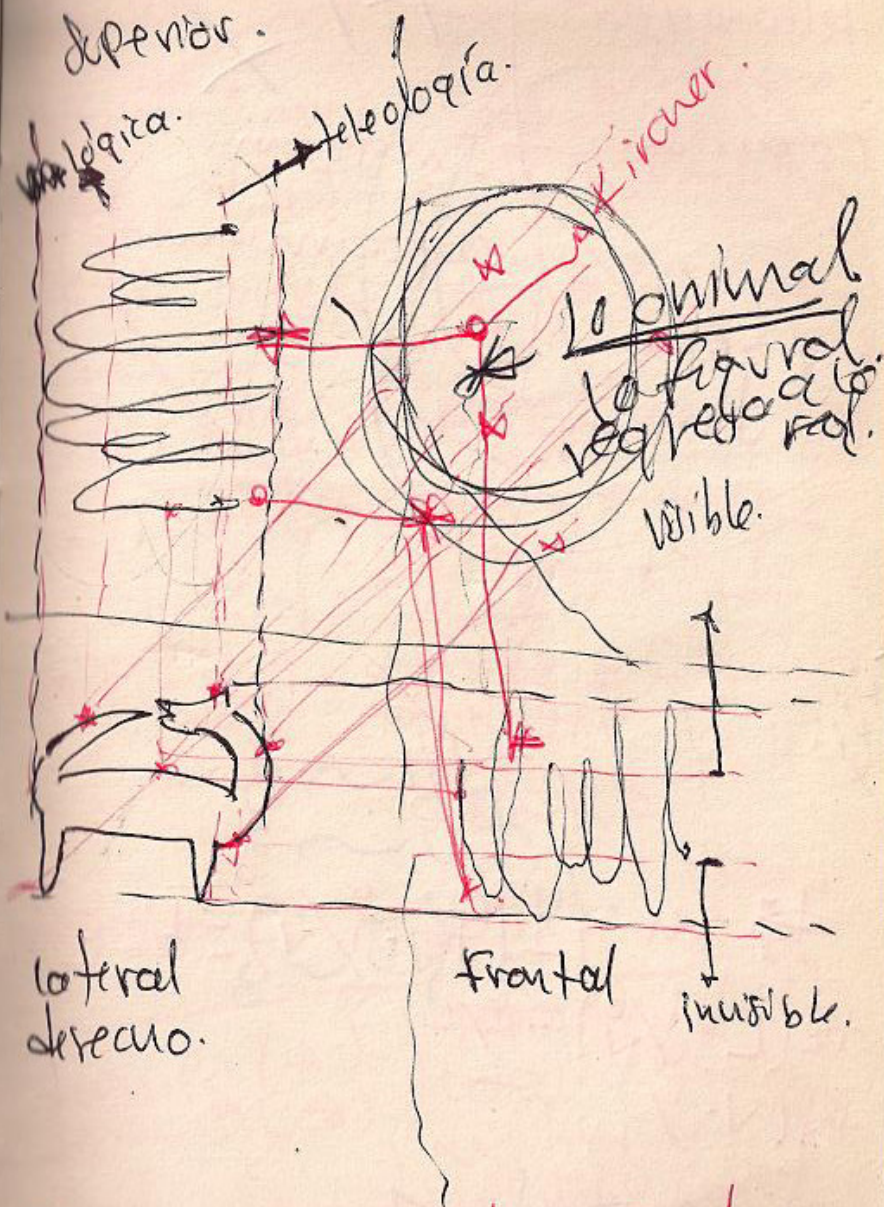 Superior.
lógica.
teleología.
Kircher.
lo animal
lo figural.
regresa a lo
real.
visible.
lateral
derecho.
Frontal
invisible.